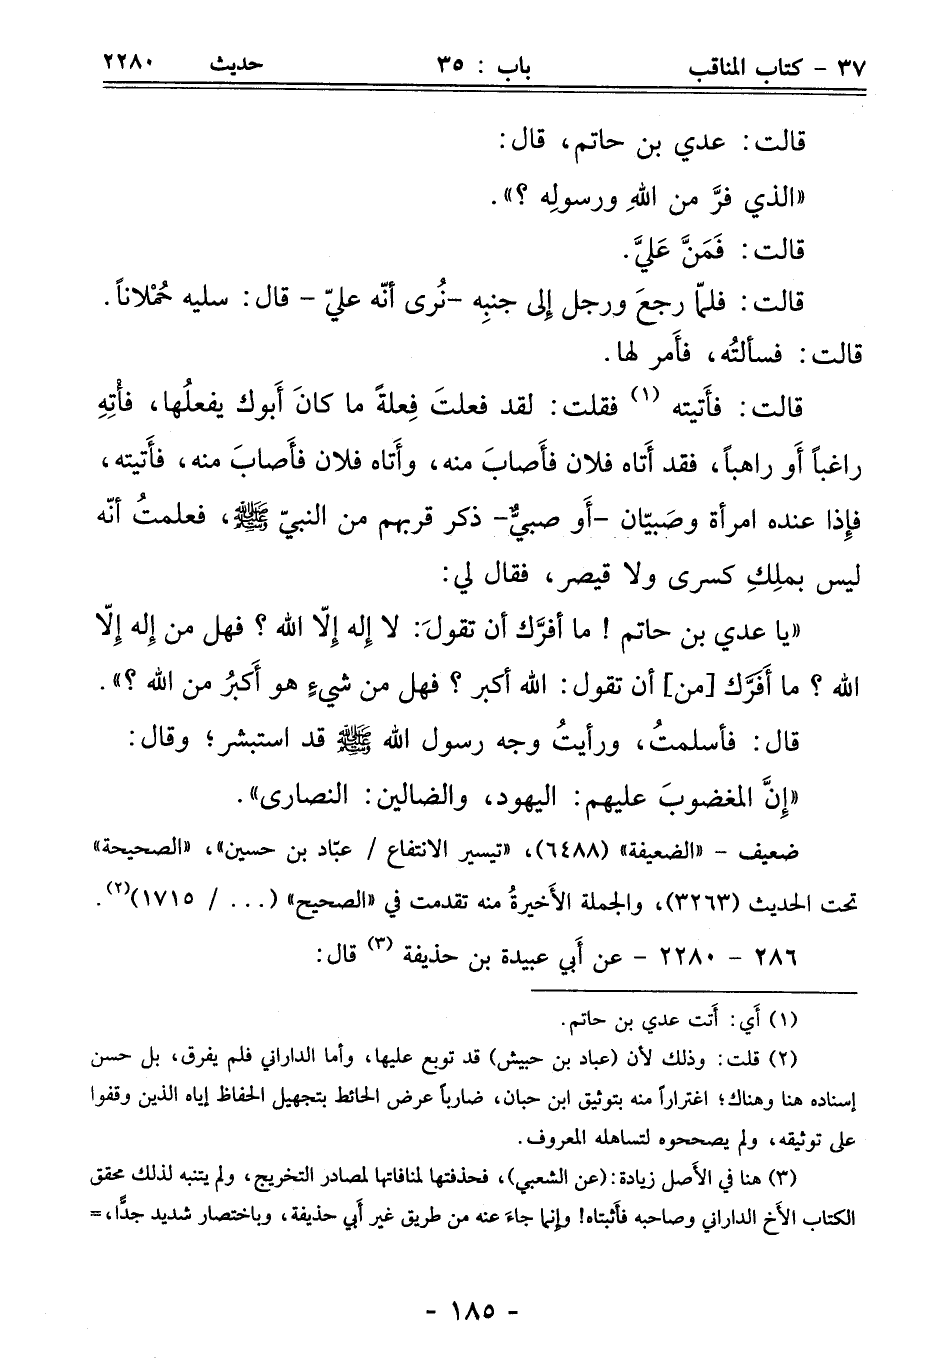 ٣٧ - كتاب المناقب باب : ٣٥ حديث ٢٢٨٠
قالت: عدي بن حاتم، قال:
«الذي فرَّ من اللهِ ورسولِه ؟».
قالت: فَمَنَّ عَليَّ.
قالت: فلمّا رجعَ ورجل إلى جنبِه -نُرى أنّه عليّ - قال: سليه حُمْلاناً.
قالت: فسألتُه، فأَمر لها.
قالت: فأَتيته (١) فقلت: لقد فعلتَ فِعلةً ما كانَ أَبوك يفعلُها، فأْتِهِ
راغباً أَو راهباً، فقد أَتاه فلان فأَصابَ منه، وأَتاه فلان فأَصابَ منه، فأَتيته،
فإِذا عنده امرأة وصَبيّان -أَو صبيٌّ- ذكر قربهم من النبيّ ﷺ، فعلمتُ أنّه
ليس بملِكِ كسرى ولا قيصر، فقال لي:
«يا عدي بن حاتم ! ما أفرَّك أن تقولَ: لا إله إلّا الله ؟ فهل من إله إلّا
الله ؟ ما أَفَرَّك [من] أن تقول: الله أكبر ؟ فهل من شيءٍ هو أَكبرُ من الله ؟».
قال: فأسلمتُ، ورأيتُ وجه رسول الله ﷺ قد استبشر؛ وقال:
«إنَّ المغضوبَ عليهم: اليهود، والضالين: النصارى».
ضعيف - «الضعيفة» (٦٤٨٨)، «تيسير الانتفاع / عبّاد بن حسين»، «الصحيحة»
تحت الحديث (٣٢٦٣)، والجملة الأَخيرةُ منه تقدمت في «الصحيح» (... / ١٧١٥)(٢).
٢٨٦ - ٢٢٨٠ - عن أَبي عبيدة بن حذيفة (٣) قال:
(١) أَي: أَتت عدي بن حاتم.
(٢) قلت: وذلك لأن (عباد بن حبيش) قد توبع عليها، وأما الداراني فلم يفرق، بل حسن
إسناده هنا وهناك؛ اغتراراً منه بتوثيق ابن حبان، ضارباً عرض الحائط بتجهيل الحفاظ إياه الذين وقفوا
على توثيقه، ولم يصححوه لتساهله المعروف.
(٣) هنا في الأَصل زيادة: (عن الشعبي)، فحذفتها لمنافاتها لمصادر التخريج، ولم يتنبه لذلك محقق
الكتاب الأَخ الداراني وصاحبه فأَثبتاه! وإنما جاءَ عنه من طريق غير أَبي حذيفة، وباختصار شديد جدًّا، =
- ١٨٥ -